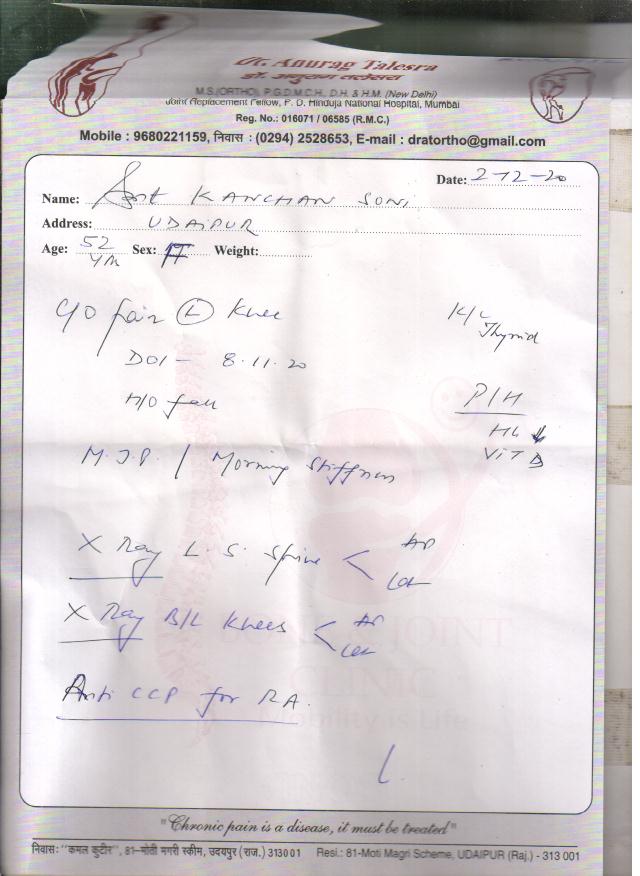 Dr. Anurag Talesra
डॉ. अनुराग तलेसरा
M.S.(ORTHO), P.G.D.M.C.H., D.H. & H.M. (New Delhi)
Joint Replacement Fellow, P. D. Hinduja National Hospital, Mumbai
Reg. No.: 016071 / 06585 (R.M.C.)
Mobile : 9680221159, निवास : (0294) 2528653, E-mail : dratortho@gmail.com
Date: 2-12-20
Name: Smt KANCHAN SONI
Address: UDAIPUR
Age: 52 Yrs Sex: F Weight:
C/O Pain (L) Knee
K/C Thyroid
DOI - 8.11.20
H/O fall
P/H
Hb ↓
Vit D
M.J.P. / Morning Stiffness
X Ray L.S. Spine < AP Lat
X Ray B/L Knees < AP Lat
JOINT
CLINIC
Mobility is Life
Anti CCP for RA.
"Chronic pain is a disease, it must be treated"
निवास: "कमल कुटीर", 81-मोती मगरी स्कीम, उदयपुर (राज.) 313001 Resi.: 81-Moti Magri Scheme, UDAIPUR (Raj.) - 313 001